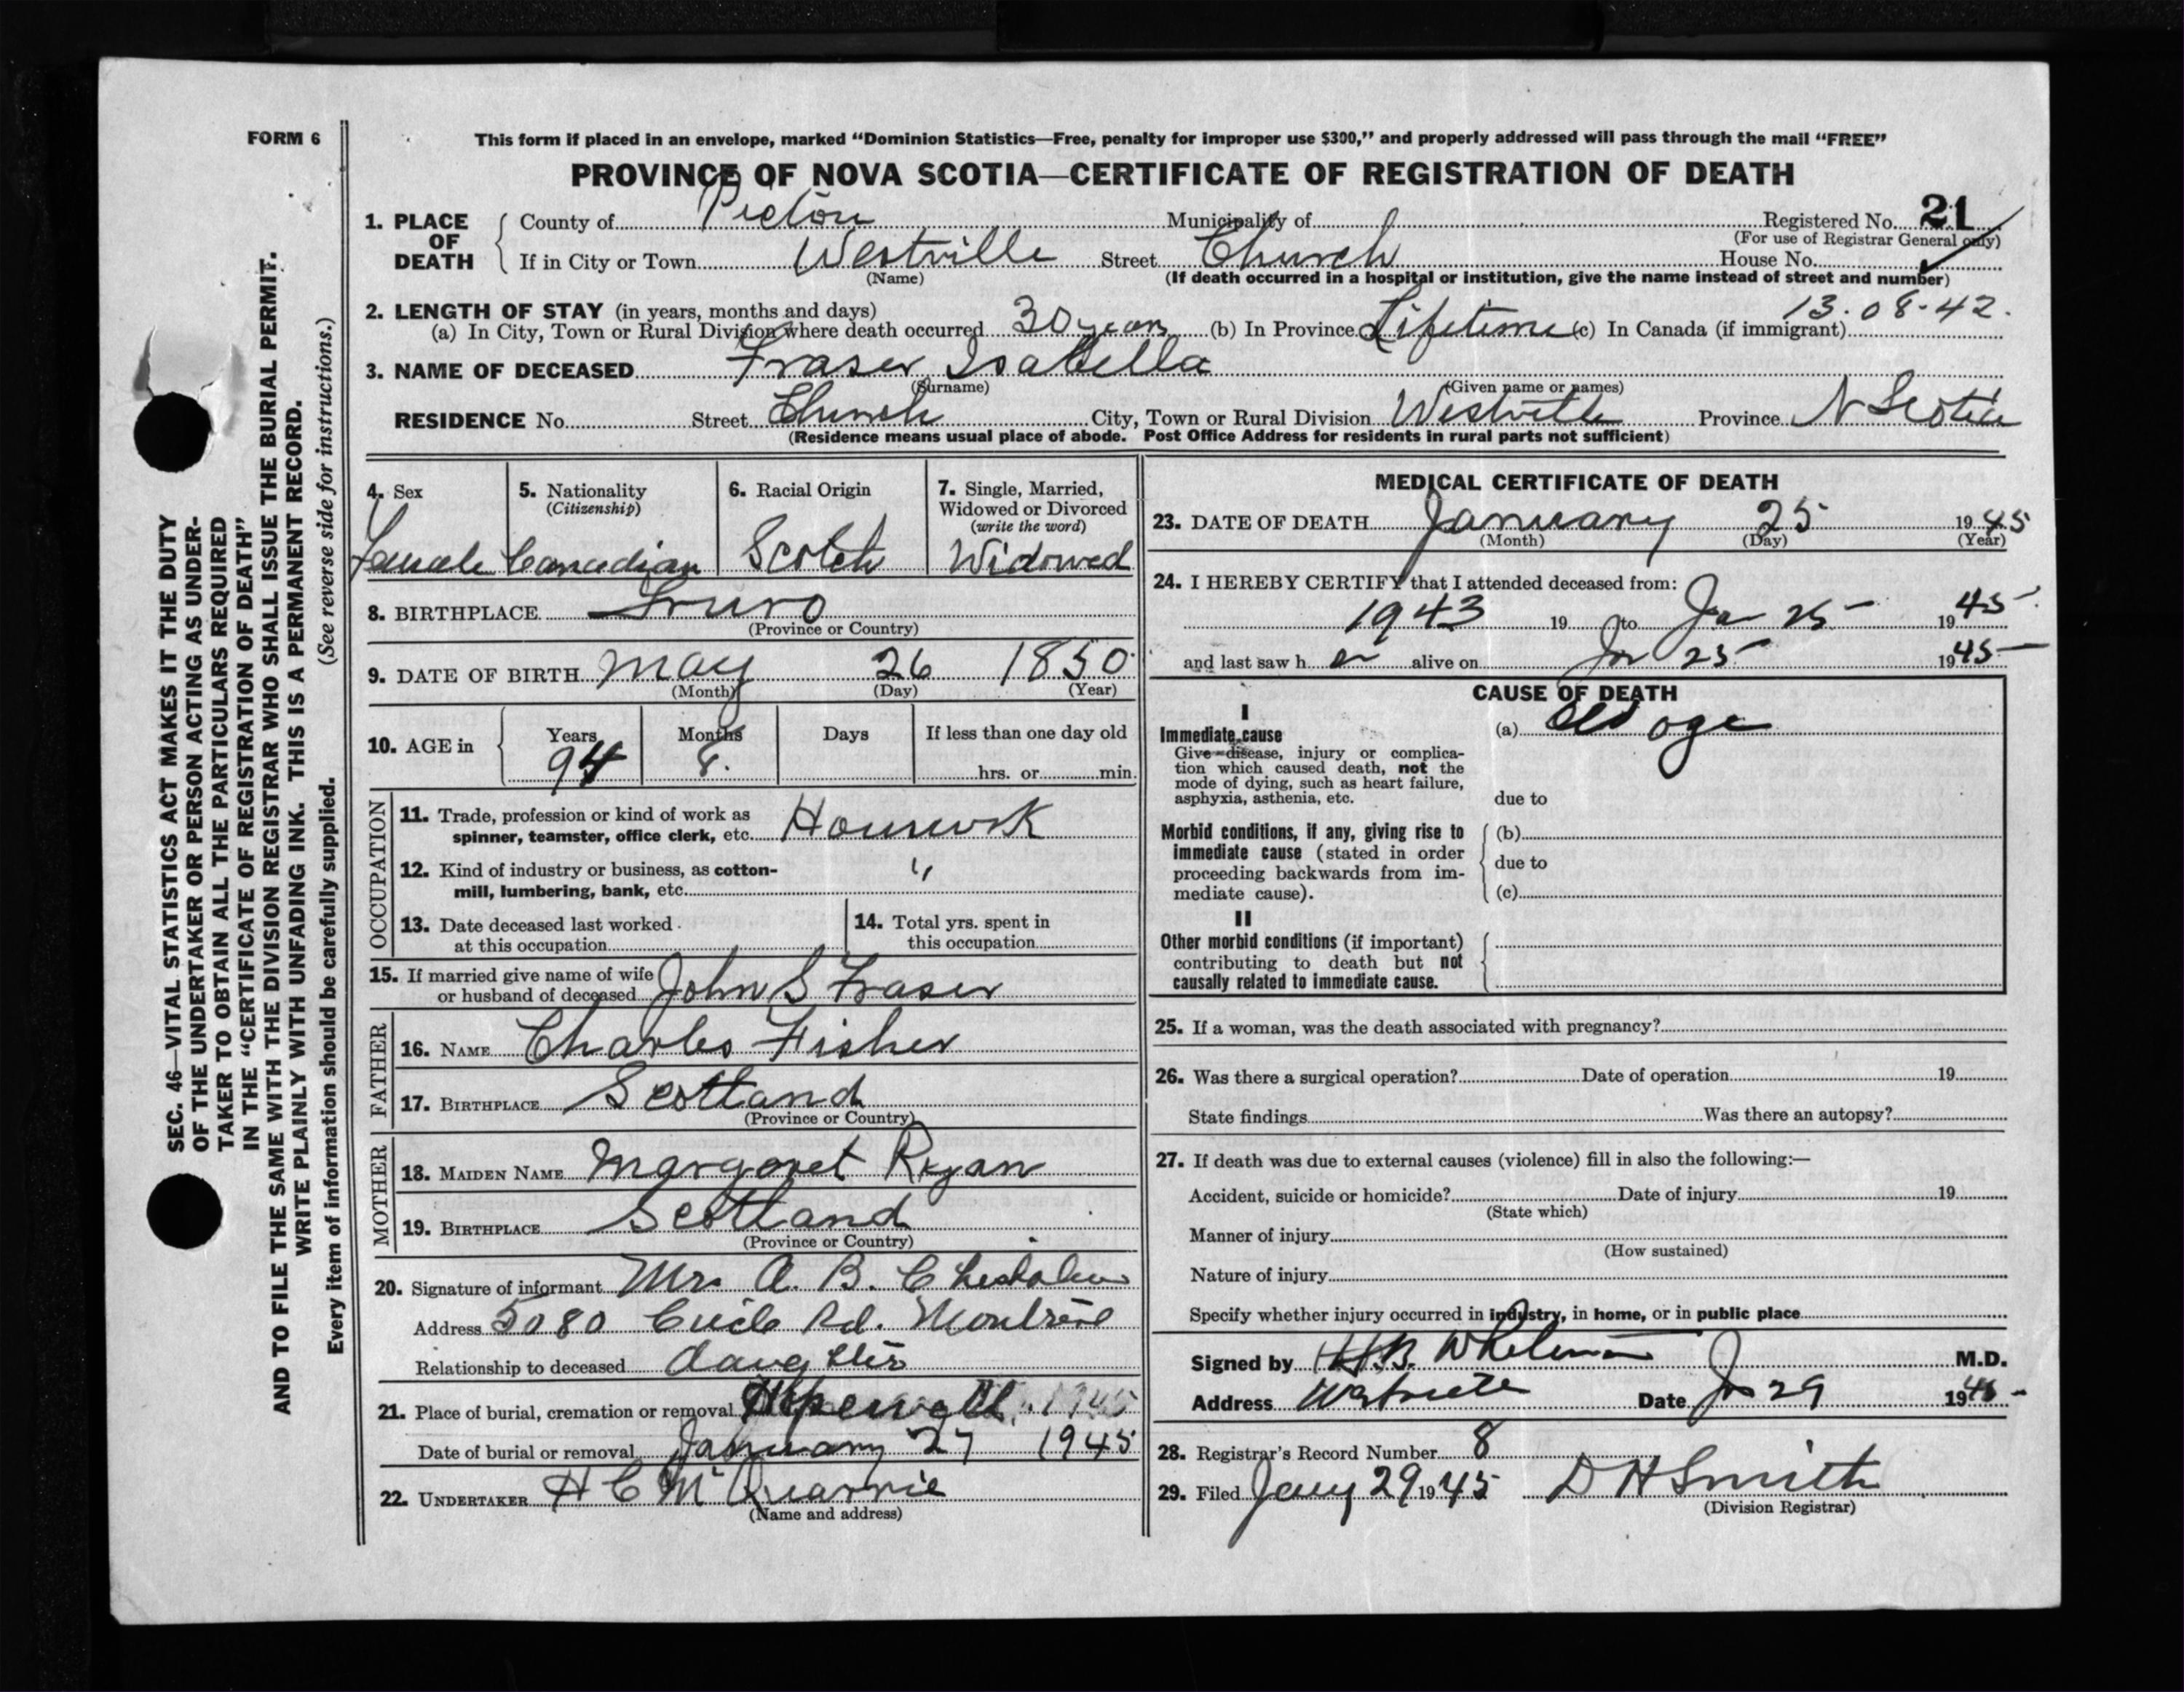 FORM 6
This form if placed in an envelope, marked “Dominion Statistics—Free, penalty for improper use $300,” and properly addressed will pass through the mail “FREE”
PROVINCE OF NOVA SCOTIA—CERTIFICATE OF REGISTRATION OF DEATH
1. PLACE OF DEATH
County of Pictou Municipality of Registered No. 21
(For use of Registrar General only)
If in City or Town Westville Street Church House No.
(Name) (If death occurred in a hospital or institution, give the name instead of street and number)
2. LENGTH OF STAY (in years, months and days) 13.08.42.
(a) In City, Town or Rural Division where death occurred 30 years (b) In Province Lifetime (c) In Canada (if immigrant)
3. NAME OF DECEASED Fraser Isabella
(Surname) (Given name or names)
RESIDENCE No. Street Church City, Town or Rural Division Westville Province N Scotia
(Residence means usual place of abode. Post Office Address for residents in rural parts not sufficient)
4. Sex
Female
5. Nationality
(Citizenship)
Canadian
6. Racial Origin
Scotch
7. Single, Married,
Widowed or Divorced
(write the word)
Widowed
8. BIRTHPLACE Truro
(Province or Country)
9. DATE OF BIRTH May 26 1850
(Month) (Day) (Year)
10. AGE in
Years Months Days If less than one day old
94 8. hrs. or min.
OCCUPATION
11. Trade, profession or kind of work as
spinner, teamster, office clerk, etc. Housework
12. Kind of industry or business, as cotton-
mill, lumbering, bank, etc. "
13. Date deceased last worked
at this occupation
14. Total yrs. spent in
this occupation
15. If married give name of wife
or husband of deceased John S Fraser
FATHER
16. NAME Charles Fisher
17. BIRTHPLACE Scotland
(Province or Country)
MOTHER
18. MAIDEN NAME Margaret Ryan
19. BIRTHPLACE Scotland
(Province or Country)
20. Signature of informant Mrs A. B. Chisholm
Address 5080 Rd. Montreal
Relationship to deceased daughter
21. Place of burial, cremation or removal Hopewell 1945
Date of burial or removal January 27 1945
22. UNDERTAKER H C McQuarrie
(Name and address)
MEDICAL CERTIFICATE OF DEATH
23. DATE OF DEATH January 25 1945
(Month) (Day) (Year)
24. I HEREBY CERTIFY that I attended deceased from:
1943 19 to Jan 25 1945
and last saw her alive on Jan 25 1945
CAUSE OF DEATH
I
Immediate cause
Give disease, injury or complica-
tion which caused death, not the
mode of dying, such as heart failure,
asphyxia, asthenia, etc.
(a) Old age
due to
Morbid conditions, if any, giving rise to
immediate cause (stated in order
proceeding backwards from im-
mediate cause).
(b)
due to
(c)
II
Other morbid conditions (if important)
contributing to death but not
causally related to immediate cause.
25. If a woman, was the death associated with pregnancy?
26. Was there a surgical operation? Date of operation 19
State findings Was there an autopsy?
27. If death was due to external causes (violence) fill in also the following:—
Accident, suicide or homicide? Date of injury 19
(State which)
Manner of injury
(How sustained)
Nature of injury
Specify whether injury occurred in industry, in home, or in public place
Signed by H.B. Whitman M.D.
Address Westville Date Jan 29 1945
28. Registrar's Record Number 8
29. Filed Jany 29 1945 D H Smith
(Division Registrar)
SEC. 46—VITAL STATISTICS ACT MAKES IT THE DUTY
OF THE UNDERTAKER OR PERSON ACTING AS UNDER-
TAKER TO OBTAIN ALL THE PARTICULARS REQUIRED
IN THE “CERTIFICATE OF REGISTRATION OF DEATH”
AND TO FILE THE SAME WITH THE DIVISION REGISTRAR WHO SHALL ISSUE THE BURIAL PERMIT.
WRITE PLAINLY WITH UNFADING INK. THIS IS A PERMANENT RECORD.
Every item of information should be carefully supplied. (See reverse side for instructions.)